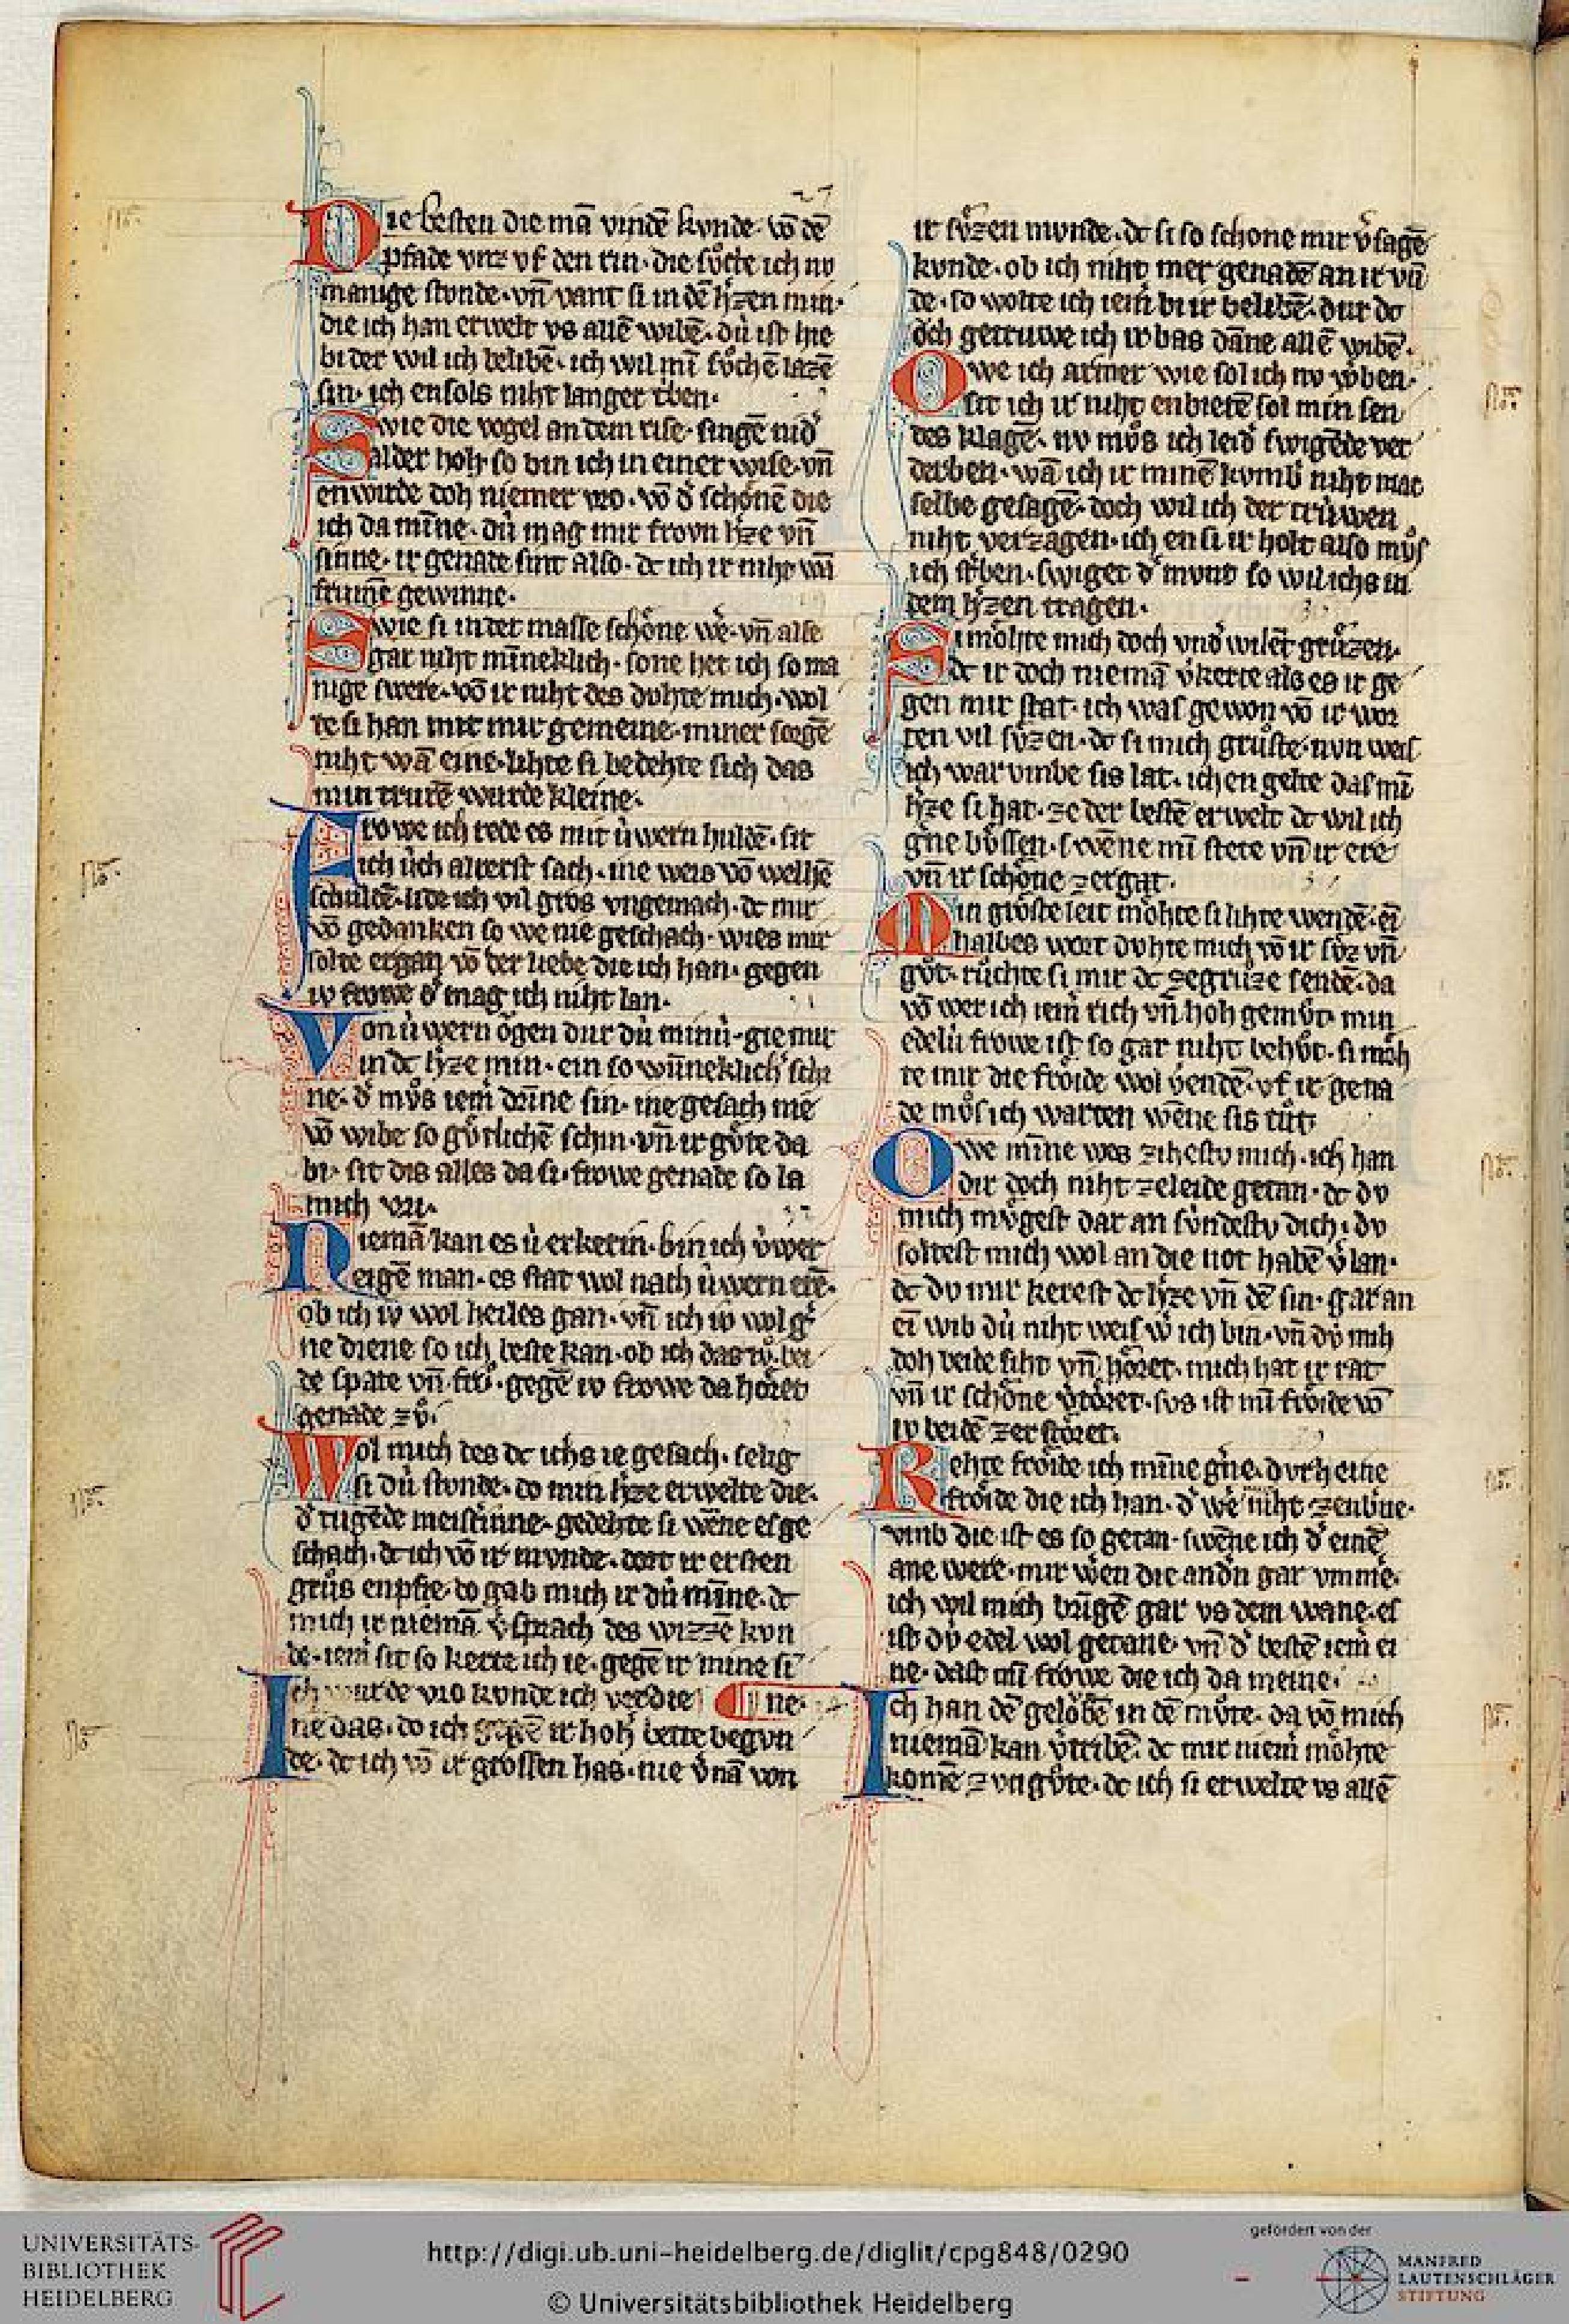 Die besten die mā vindē kvnde. vō dē
pfade vnz vf den rin. die sv̊chte ich nv
manige stonde. vn̄ vant si in dē h'zen min.
die ich han erwelt vs allē wibē. dú ist hie
bi der wil ich belibē. ich wil mī sv̊chē lazē
sin. ich ensols niht langer triben.
Swie die vogel an dem rise. singē nid'
alder hoh. so bin ich in einer wise. vn̄
enwirde doh niemer vro. vō d' schönē die
ich da mīne. dú mag mir frovn h'ze vn̄
sinne. ir genade sint also. dc ich ir niht wā
frumē gewinne.
Swie si in der masse schöne we'. vn̄ alse
gar niht mīneklich. sone het ich so ma
nige swere. vō ir niht des dvhte mich. wol
te si han mit mir gemeine. miner sorgē
niht wā eine. lihte si bedehte sich das
min trurē wurde kleine.
Frowe ich rede es mit úwern huldē. sit
ich úch alrerst sach. ine weis vō welhē
schuldē. lide ich vil gros vngemach. dc mir
vō gedanken so we nie geschach. wies mir
solte ergan vō der liebe die ich han. gegen
iv frowe d' mag ich niht lan.
Von úwern ögen dur dú minú. gie mir
in dc h'ze min. ein so wūneklich' schi
ne. d' mv̊s iem' drīne sin. ine gesach nie
vō wibe so gv̊tlichē schin. vn̄ ir gv̊te da
bi. sit dis alles da si. frowe genade so la
mich vri.
Niemā kan es úerkerin. bin ich úwer
eigē man. es stat wol nach úwern erē.
ob ich iv wol heiles gan. vn̄ ich iv wol g'
ne diene so ich beste kan. ob ich das tv̊. bei
de spate vn̄ frv̊. gegē iv frowe da höret
genade zv̊.
Wol mich des dc ichs ie gesach. selig
si dú stonde. do min h'ze erwelte die.
d' tugēde meistinne. gedehte si wēne es ge
schach. dc ich vō ir mvnde. dort ir ersten
grůs enpfie. do gab mich ir dú mīne. dc
mich ir niemā v'sprach des wizzē kvn
de. iem' sit so kerte ich ie. gegē ir mine si
¶ ne.
Ich wurde vro kvnde ich verdie
ne das. do ich gegē ir hoh' bette begvn
de. dc ich vō ir grossen has. nie v'nā von
ir sv̊zen mvnde. dc si so schone mir v'sagē
kvnde. ob ich niht mer genadē an ir vū
de. so wolte ich iem' bi ir belibē. dur dc
öch getruwe ich ir bas dāne allē wibē.
Owe ich armer wie sol ich nv w'ben.
sit ich ir niht enbietē sol min sen
des klagē. nv mv̊s ich leid' swigēde ver
derben. wā ich ir minē kvmb' niht mac
selbe gesagē. doch wil ich der trúwen
niht verzagen. ich en si ir holt also mv̊s
ich st'ben. swiget d' mvnt so wil ichs in
dem h'zen tragen.
Si möhte mich doch vnd' wilēt grůzen.
dc ir doch niemā v'kerte als es ir ge
gen mir stat. ich was gewon vō ir wor
ten vil sv̊zen. dc si mich grůste. nvn weis
ich war vmbe sis lat. ich en gelte das mī
h'ze si hat. ze der bestē erwelt dc wil ich
g'ne bv̊ssen. swēne mī stete vn̄ ir ere
vn̄ ir schöne zergat.
Min gröste leit möhte si lihte wendē. ein
halbes wort dvhte mich vō ir sv̊z vn̄
gůt. růchte si mir dc ze grůze sendē. da
vō wer ich iem' rich vn̄ hoh gemv̊t. min
edelú frowe ist so gar niht behv̊t. si möh
te mir die fröide wol v'endē. vf ir gena
de mv̊s ich warten wēne sis tůt.
Owe mīne wes zihestv mich. ich han
dir doch niht ze leide getan. dc dv
mich mv̊gest dar an súndestv dich. dv
soltest mich wol an die not habē v'lan.
dc dv mir kerest dc h'ze vn̄ dē sin. gar an
ei wib dú niht weis w' ich bin. vn̄ dv̊ mih
doh beide siht vn̄ höret. mich hat ir rat
vn̄ ir schöne v'töret. svs ist mī fröide vō
iv beidē zerstöret.
Rehte fröide ich mīne g'ne. dvrh eine
fröide die ich han. d' we' niht zenb'ne.
vmb die ist es so getan. swēne ich d' einē
ane were. mir we'n die and'n gar vmme'.
ich wil mich bringē gar vs dem wane. es
ist dv edel wol getane. vn̄ d' bestē iem' ei
ne. dast mī frowe die ich da meine.
Ich han dē gelöbē in dē mv̊te. da vō mich
niemā kan v'tribē. dc mir niem' möhte
komē z vngv̊te. dc ich si erwelte vs allē
UNIVERSITÄTS-
BIBLIOTHEK
HEIDELBERG
http://digi.ub.uni-heidelberg.de/diglit/cpg848/0290
© Universitätsbibliothek Heidelberg
gefördert von der
MANFRED
LAUTENSCHLÄGER
STIFTUNG